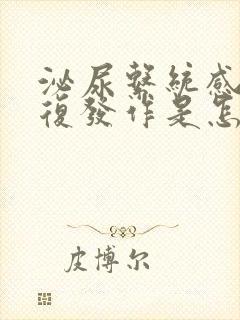 泌尿繫統感
復發作是怎
皮博尔